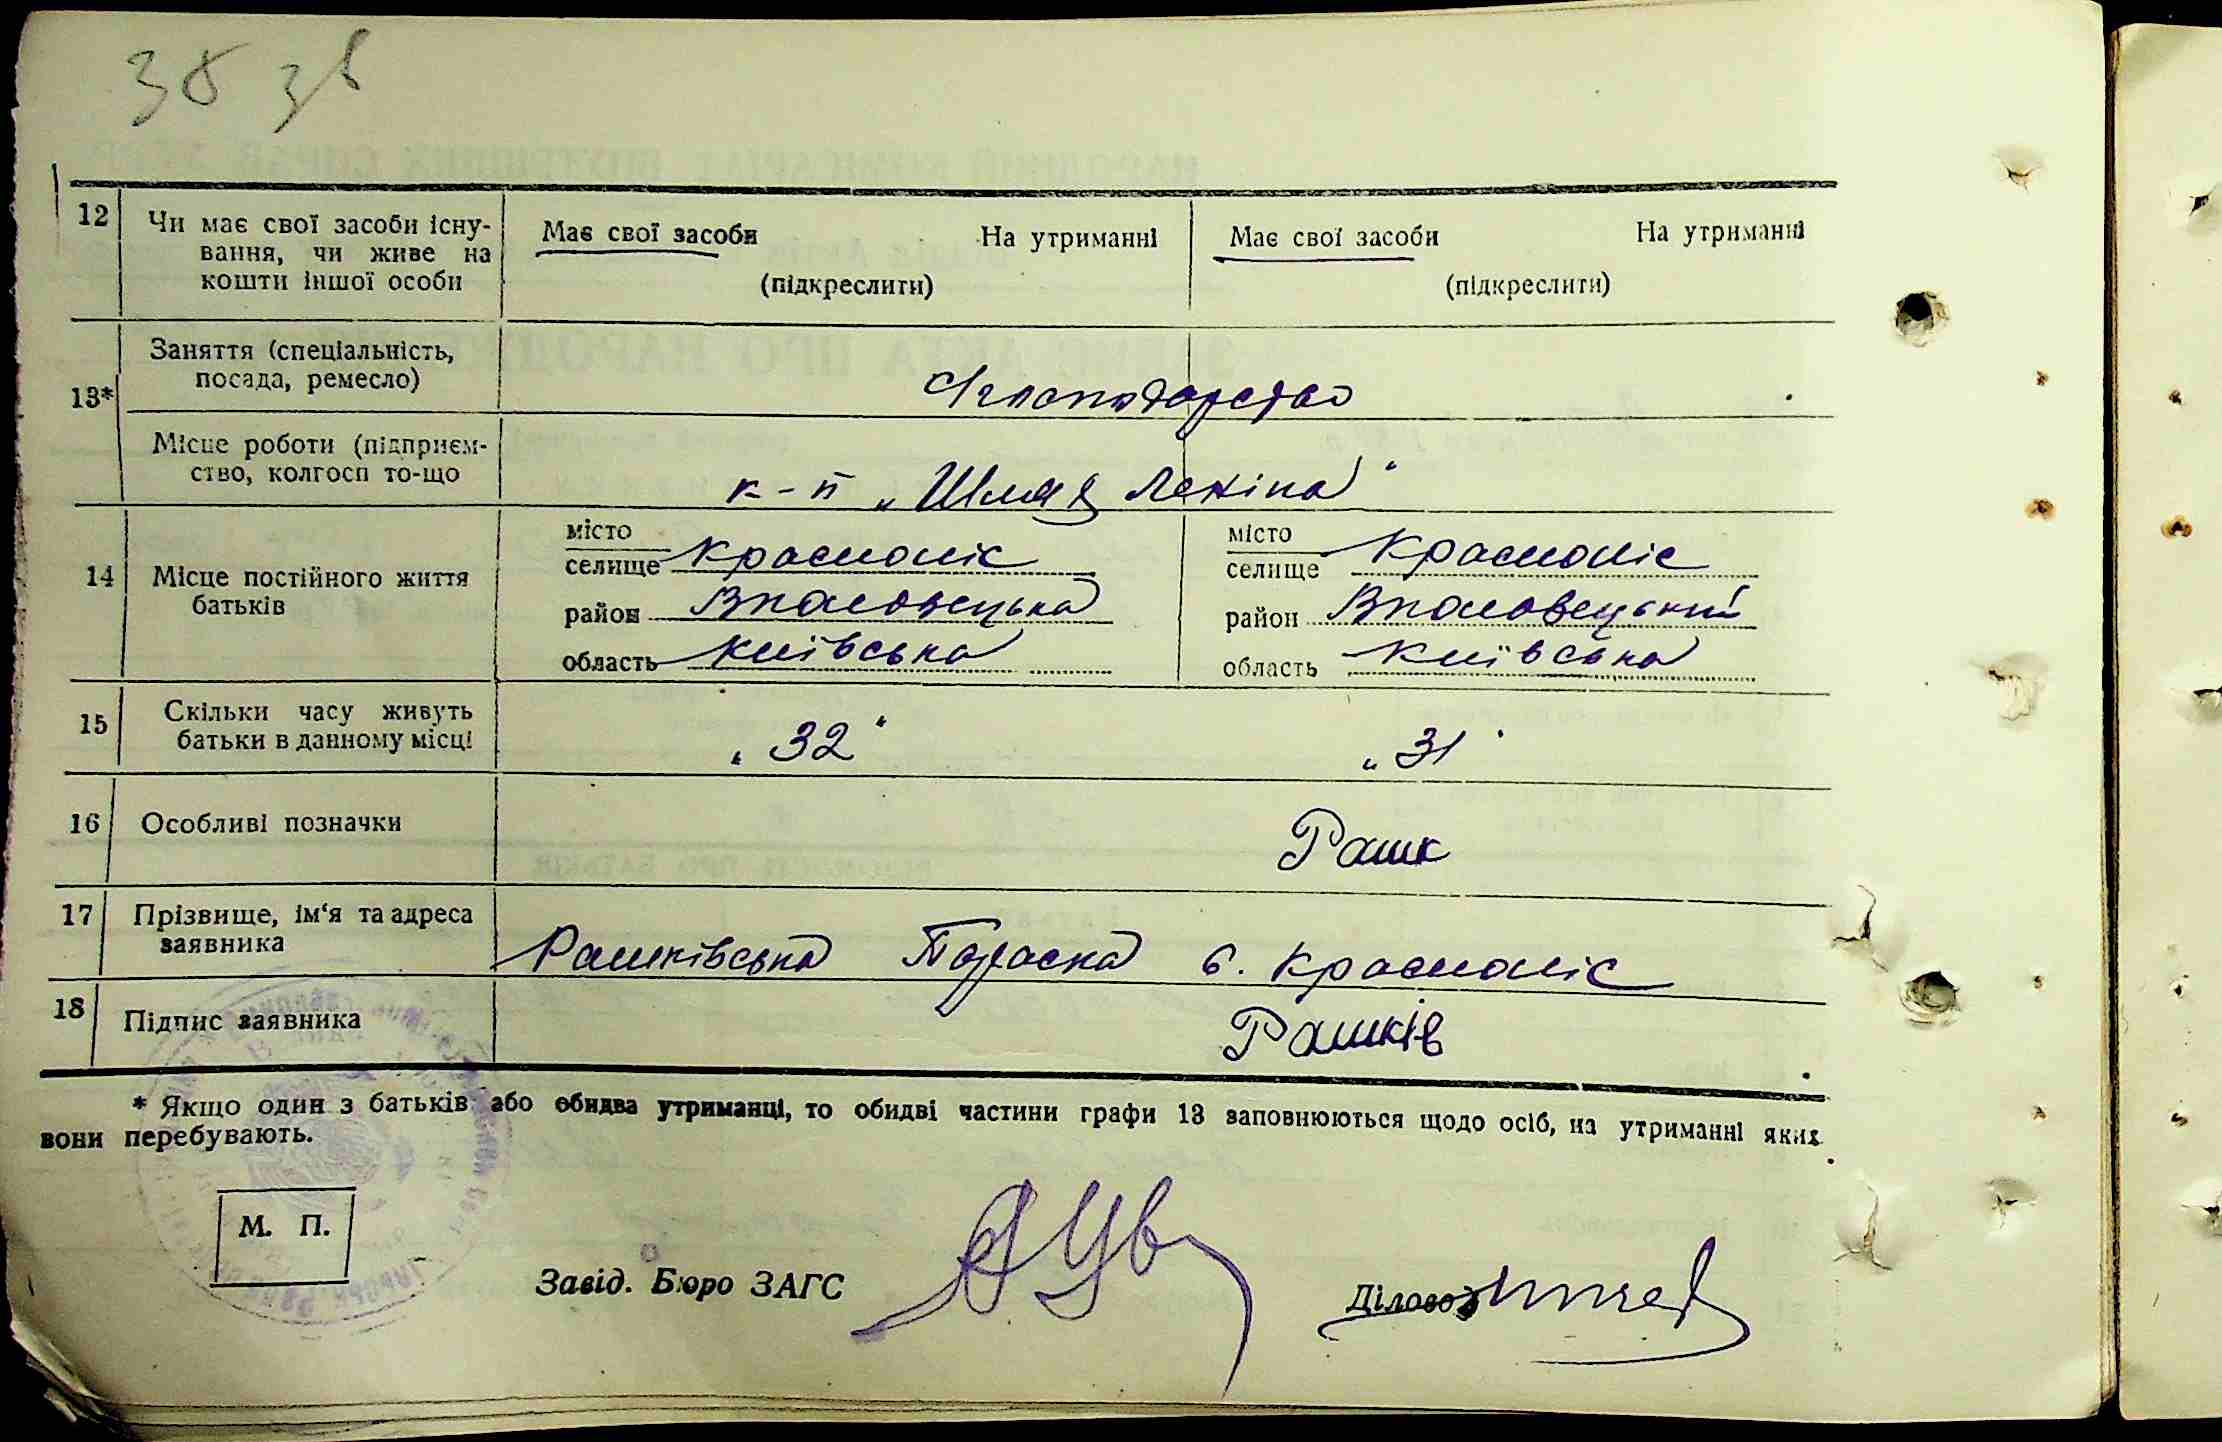 38 зв
12 Чи має свої засоби існу-
вання, чи живе на
кошти іншої особи
Має свої засоби На утриманні
(підкреслити)
Має свої засоби На утриманні
(підкреслити)
13* Заняття (спеціальність,
посада, ремесло)
Місце роботи (підприєм-
ство, колгосп то-що
к-п „Шлях Леніна"
14 Місце постійного життя
батьків
місто
селище Красноліс
район
область Київська
місто
селище Красноліс
район
область Київська
15 Скільки часу живуть
батьки в данному місці
„32" „31"
16 Особливі позначки
Рашк
17 Прізвище, ім'я та адреса
заявника
Рашківська Параска с. Красноліс
18 Підпис заявника
Рашків
* Якщо один з батьків або обидва утриманці, то обидві частини графи 13 заповнюються щодо осіб, на утриманні яких
вони перебувають.
М. П.
Завід. Бюро ЗАГС
Діловод